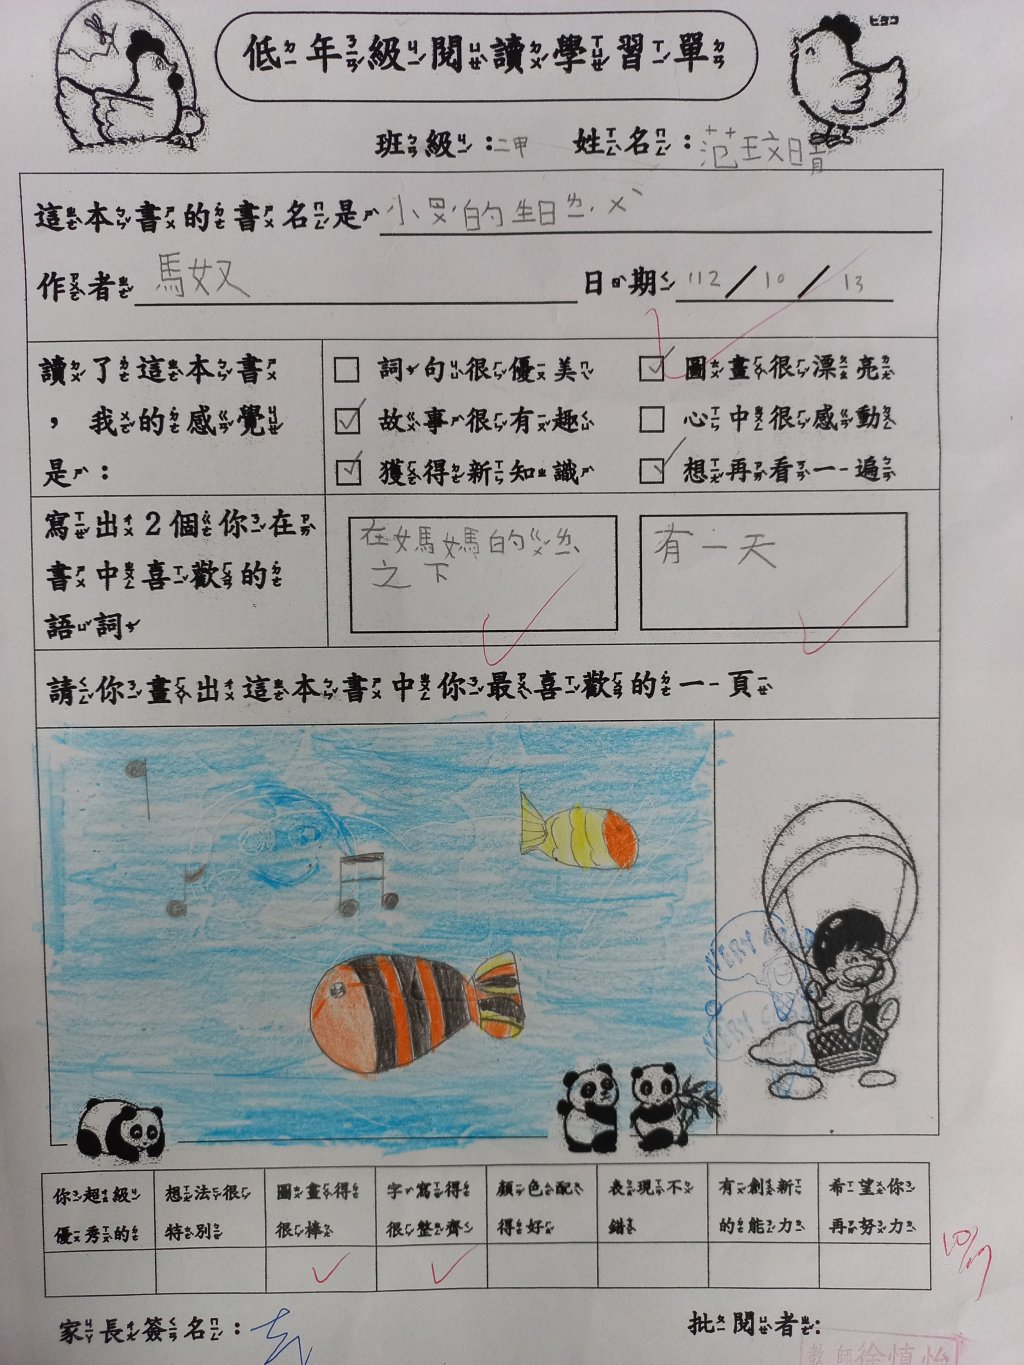 ヒヨコ
低年級閱讀學習單
班級：二甲 姓名：范玟晴
這本書的書名是 小ㄇㄟˊ的生日ㄌㄜˋㄨˋ
作者 馬奴 日期 112/10/13
讀了這本書
，我的感覺
是：
□ 詞句很優美 ☑ 圖畫很漂亮
☑ 故事很有趣 □ 心中很感動
☑ 獲得新知識 ☑ 想再看一遍
寫出2個你在
書中喜歡的
語詞
在媽媽的ㄍㄨˇㄌㄧˋ
之下
有一天
請你畫出這本書中你最喜歡的一頁
VERY
VERY
你超級
優秀的
想法很
特別
圖畫得
很棒
字寫得
很整齊
顏色配
得好
表現不
錯
有創新
的能力
希望你
再努力
10/17
家長簽名： 批閱者：
教師徐慎怡